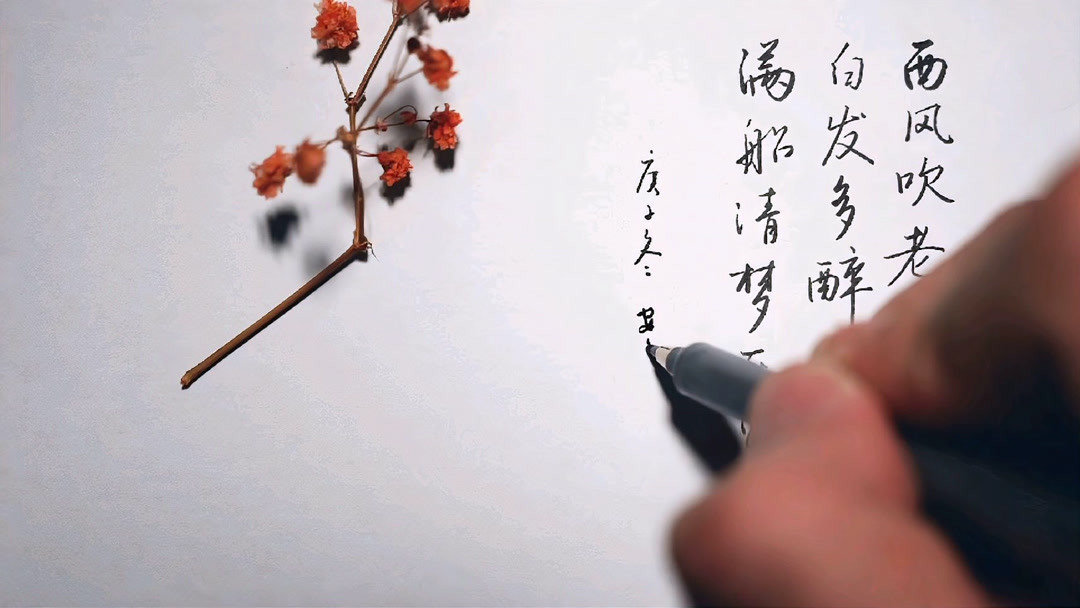 西风吹老
白发多醉
满船清梦
庚子冬